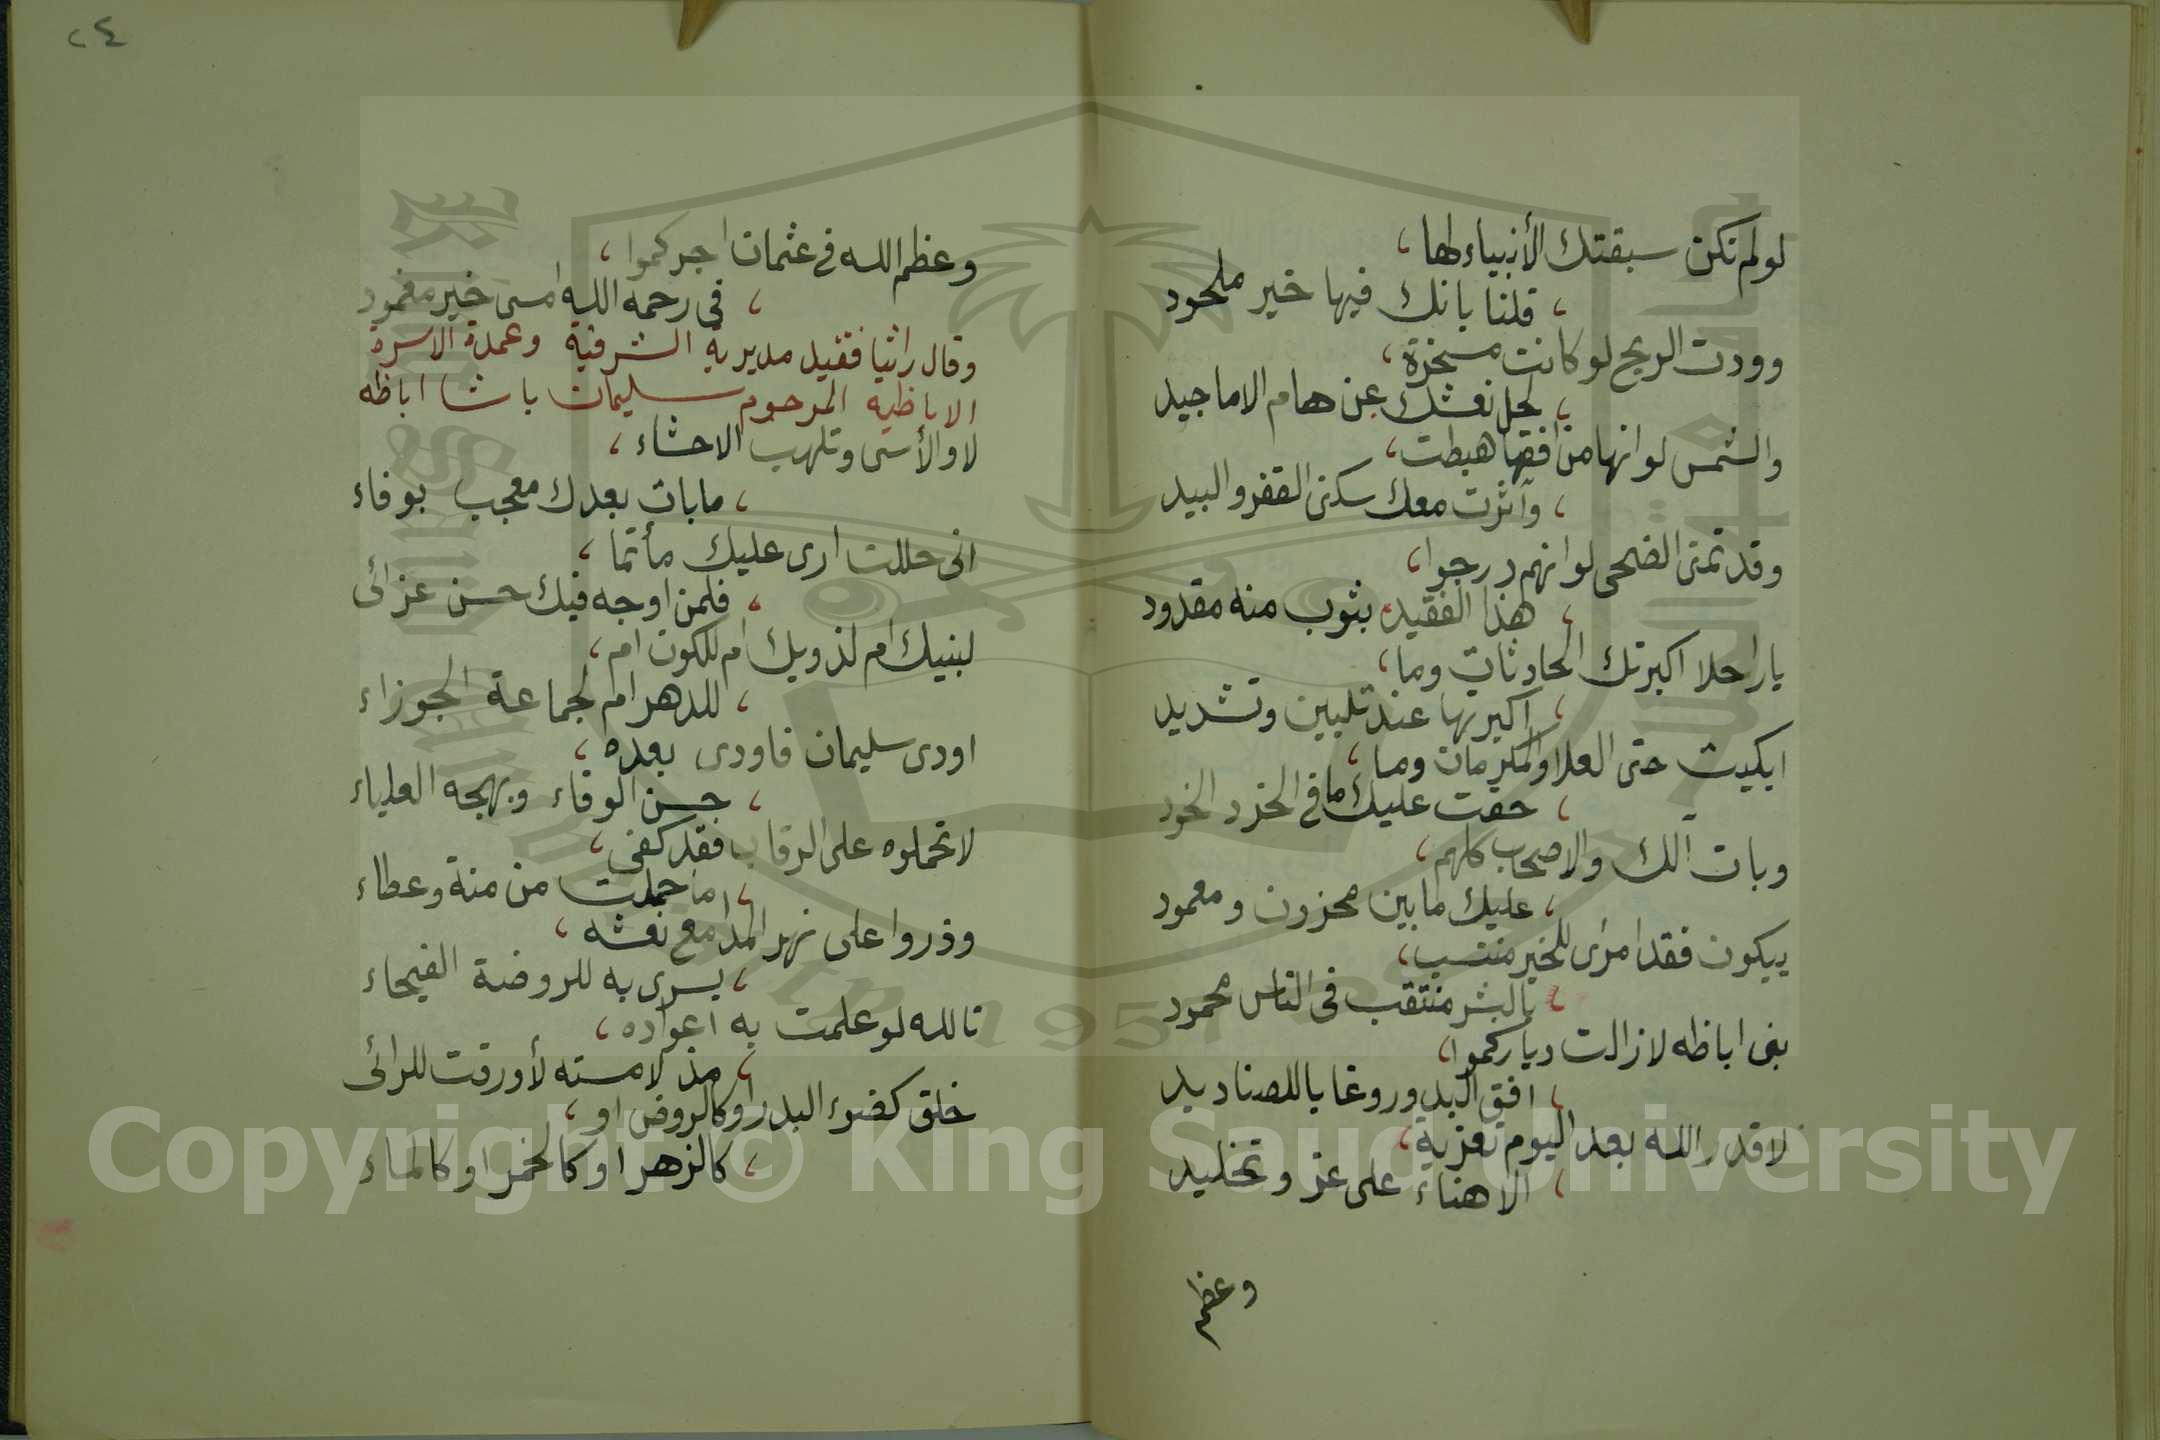 لو لم تكن سبقتك الأنبياء لها ،
، قلنا بانك فيها خير ملحود
وودت الريح لو كانت مسخرة ،
، لحمل نعشك عن هام الاماجيد
والشمس لو انها من افقها هبطت ،
، وآثرت معك سكنى القفر والبيد
وقد تمنى الضحى لو انهم درجوا ،
، هذا الفقيد بثوب منه مقدود
يا راحلا اكبرتك الحادثات وما ،
، اكبرتها عند تليين وتشديد
ابكيت حتى العلا والمكرمات وما ،
، حفت عليك ما فى الخرد الخود
وبات آلك والاصحاب كلهم ،
، عليك ما بين محزون ومعمود
يبكون فقد امرئ للخير منتسب ،
، بالبشر منتقب فى الناس محمود
بنى اباظه لا زالت دياركموا ،
، افق البدور وغابا للصناديد
لا قدر الله بعد اليوم تعزية ،
، الا هناء على عز وتخليد
وعظم
٢٤
وعظم الله فى عثمان اجركموا ،
، فى رحمة الله امسى خير مغمود
وقال راثيا فقيد مديرية الشرقية وعمدة الاسرة
الاباظيه المرحوم سليمان باشا اباظه
لا والأسى وتلهب الاحشاء ،
، مابات بعدك معجب بوفاء
انى حللت ارى عليك مأتما ،
، فلمن اوجه فيك حسن عزائى
لبنيك ام لذويك ام للكون ام ،
، للدهر ام لجماعة الجوزاء
اودى سليمان فاودى بعده ،
، حسن الوفاء وبهجه العلياء
لا تحملوه على الرقاب فقد كفى ،
، ما حملت من منة وعطاء
وذروا على نهر المدامع نعشه ،
، يسرى به للروضة الفيحاء
تالله لو علمت به اعواده ،
، مذ لامسته لأورقت للرائى
خلق كضوء البدر او كالروض او ،
، كالزهر او كالخمر او كالماء
Copyright © King Saud University
1957